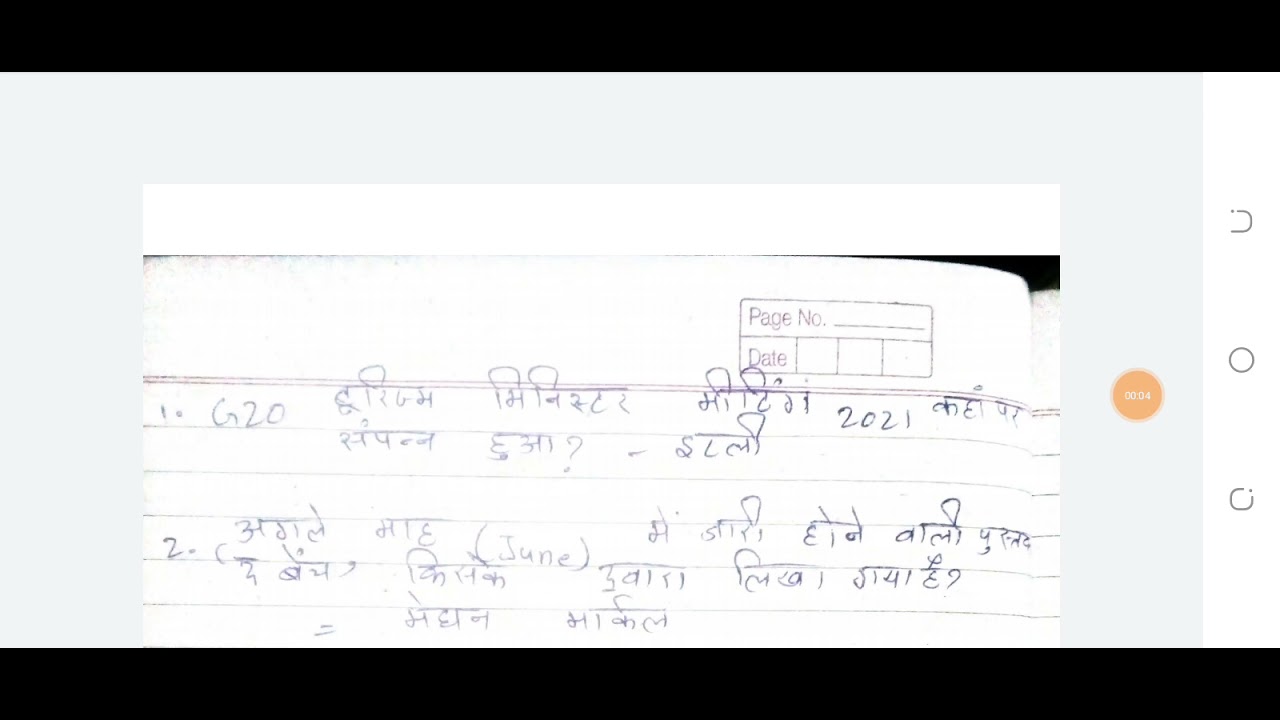 Page No.
Date
1. G20 टूरिज्म मिनिस्टर मीटिंग 2021 कहां पर
संपन्न हुआ? - इटली
2. अगले माह (June) में जारी होने वाली पुस्तक
'द बेंच' किसके दुवारा लिखा गया है?
= मेघन मार्कल
00:04